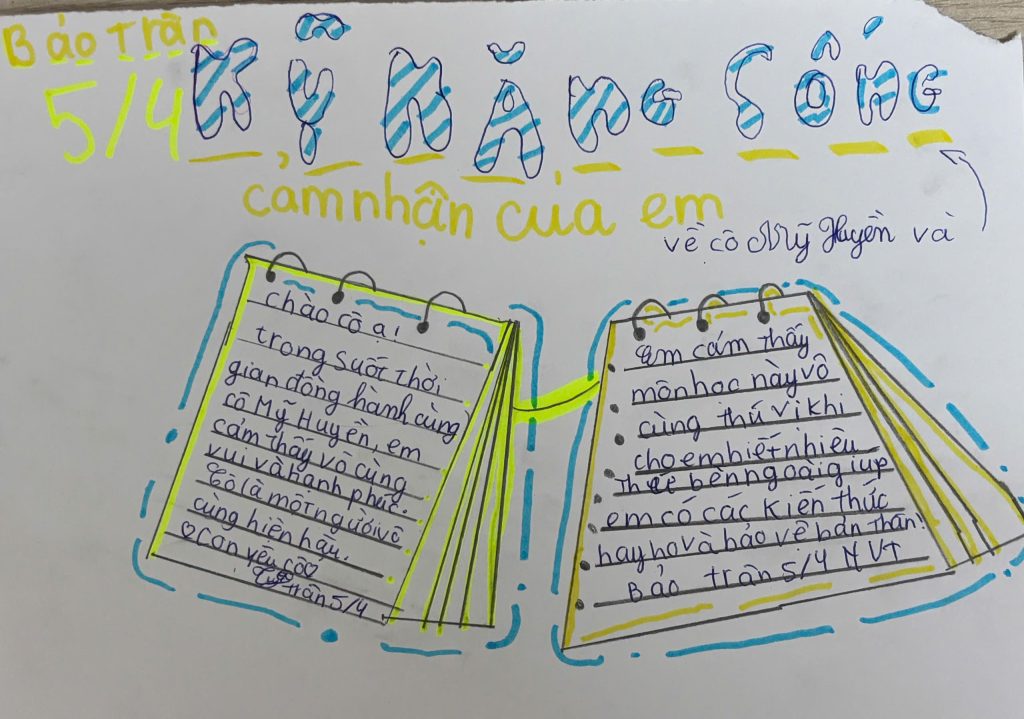 Bảo Trân
5/4
KỸ NĂNG SỐNG
cảm nhận của em
về cô Mỹ Huyền và
chào cô ạ!
trong suốt thời
gian đồng hành cùng
cô Mỹ Huyền, em
cảm thấy vô cùng
vui và hạnh phúc.
Cô là một người vô
cùng hiền hậu.
♡ con yêu cô ♡
Trân 5/4
Em cảm thấy
môn học này vô
cùng thú vị khi
cho em biết nhiều
bên ngoài giúp
em có các kiến thức
hay ho và bảo vệ bản thân!
Bảo Trân 5/4 NVT